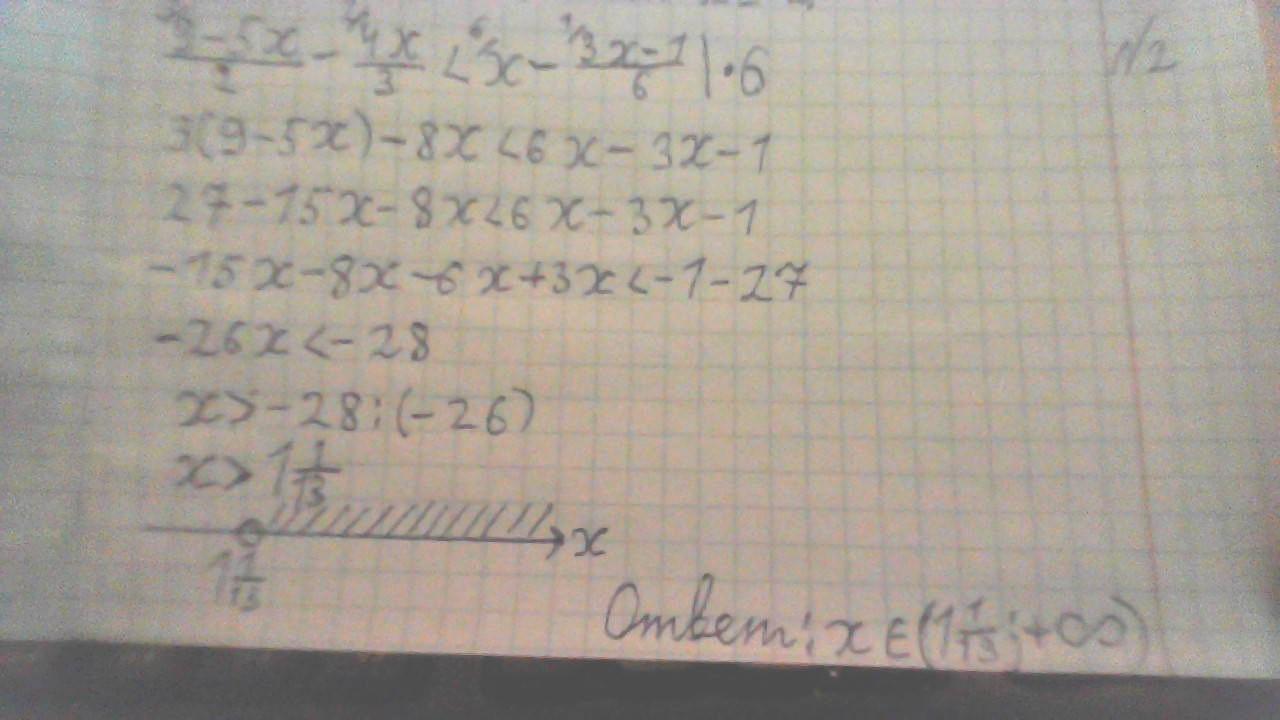 №2
9-5x/2 - 4x/3 < x - 3x-1/6 | ·6
3(9-5x)-8x<6x-3x-1
27-15x-8x<6x-3x-1
-15x-8x-6x+3x<-1-27
-26x<-28
x>-28:(-26)
x>1 1/13
x
1 1/13
Ответ: x∈(1 1/13;+∞)